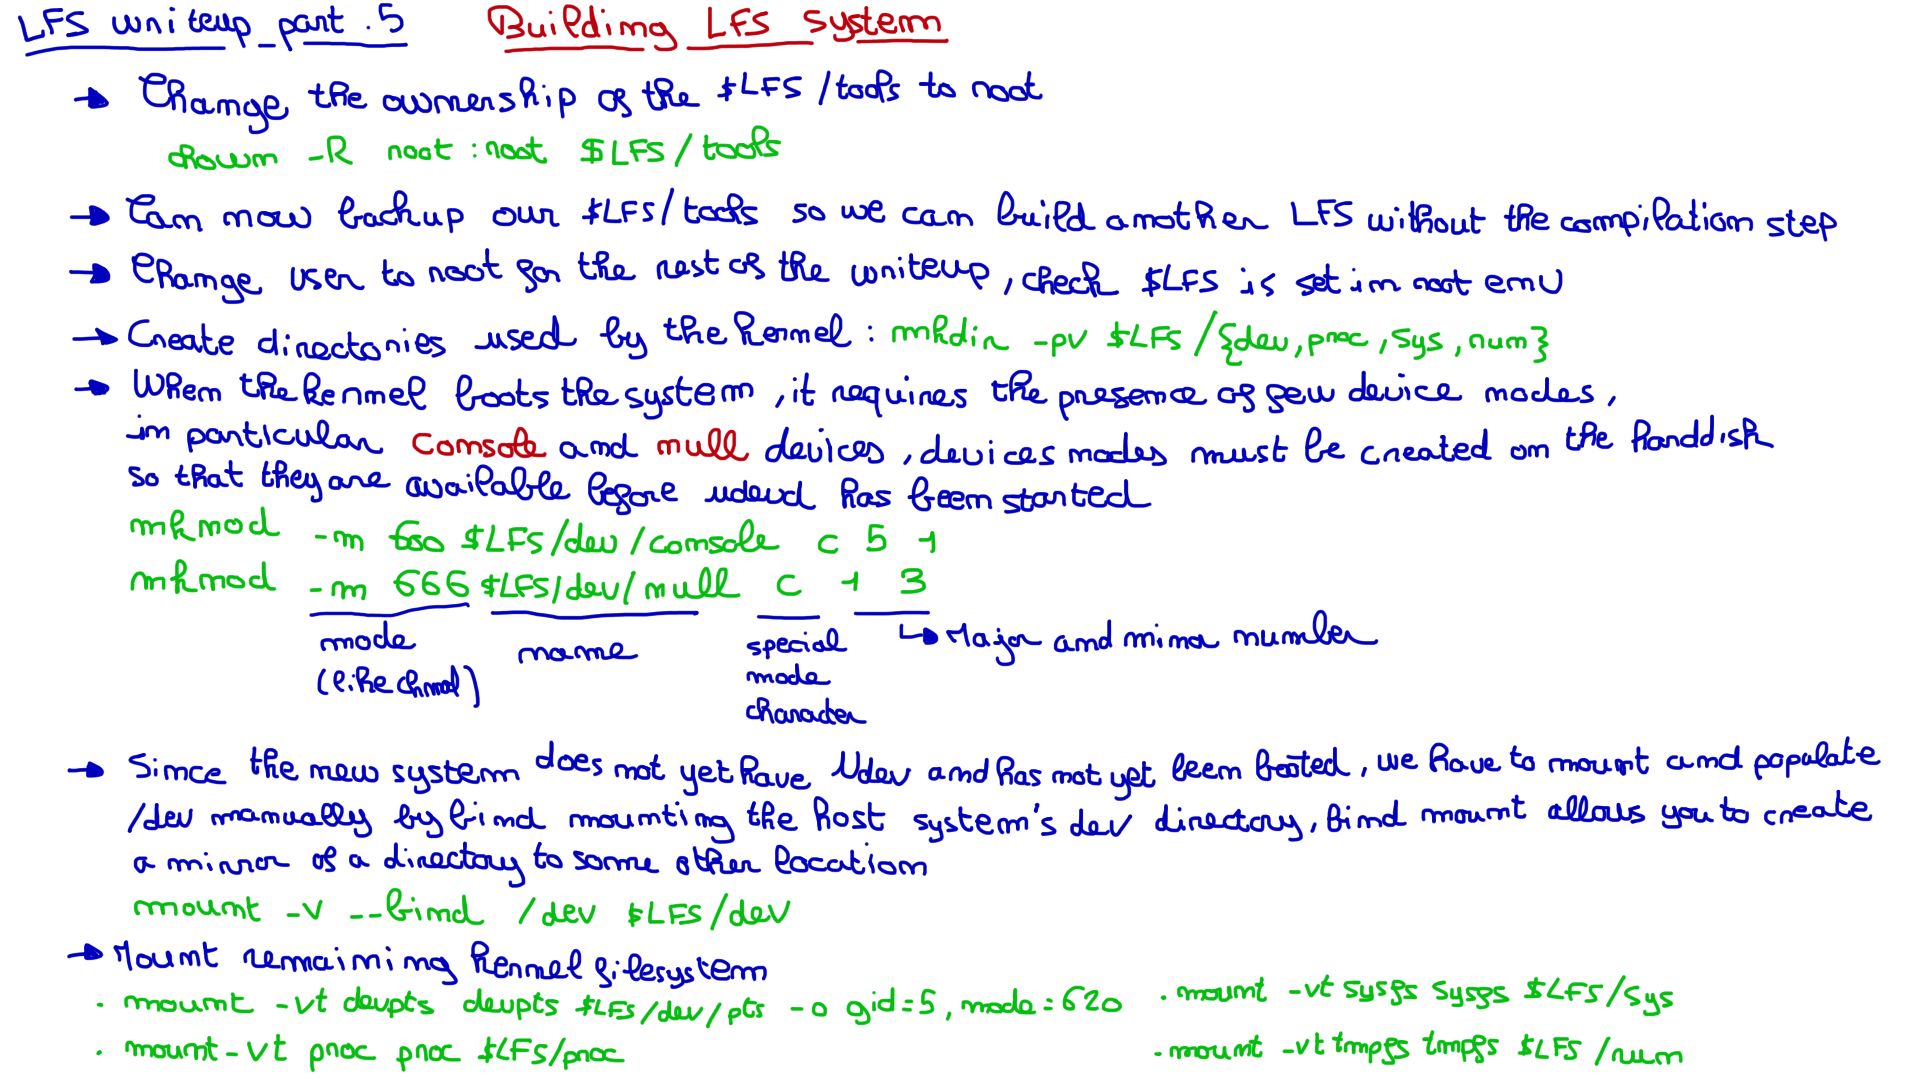 LFS writeup_part.5 Building LFS System
→ Change the ownership of the $LFS/tools to root
chown -R root:root $LFS/tools
→ Can now backup our $LFS/tools so we can build another LFS without the compilation step
→ Change user to root for the rest of the writeup, check $LFS is set in root env
→ Create directories used by the kernel: mkdir -pv $LFS/{dev,proc,sys,run}
→ When the kernel boots the system, it requires the presence of few device nodes,
in particular console and null devices, devices nodes must be created on the harddisk
so that they are available before udevd has been started
mknod -m 600 $LFS/dev/console c 5 1
mknod -m 666 $LFS/dev/null c 1 3
mode name special ↳ Major and minor number
(like chmod) node
character
→ Since the new system does not yet have Udev and has not yet been booted, we have to mount and populate
/dev manually by bind mounting the host system's dev directory, bind mount allows you to create
a mirror of a directory to some other location
mount -v --bind /dev $LFS/dev
→ Mount remaining kernel filesystem
. mount -vt devpts devpts $LFS/dev/pts -o gid=5, mode=620 . mount -vt sysfs sysfs $LFS/sys
. mount -vt proc proc $LFS/proc . mount -vt tmpfs tmpfs $LFS/run